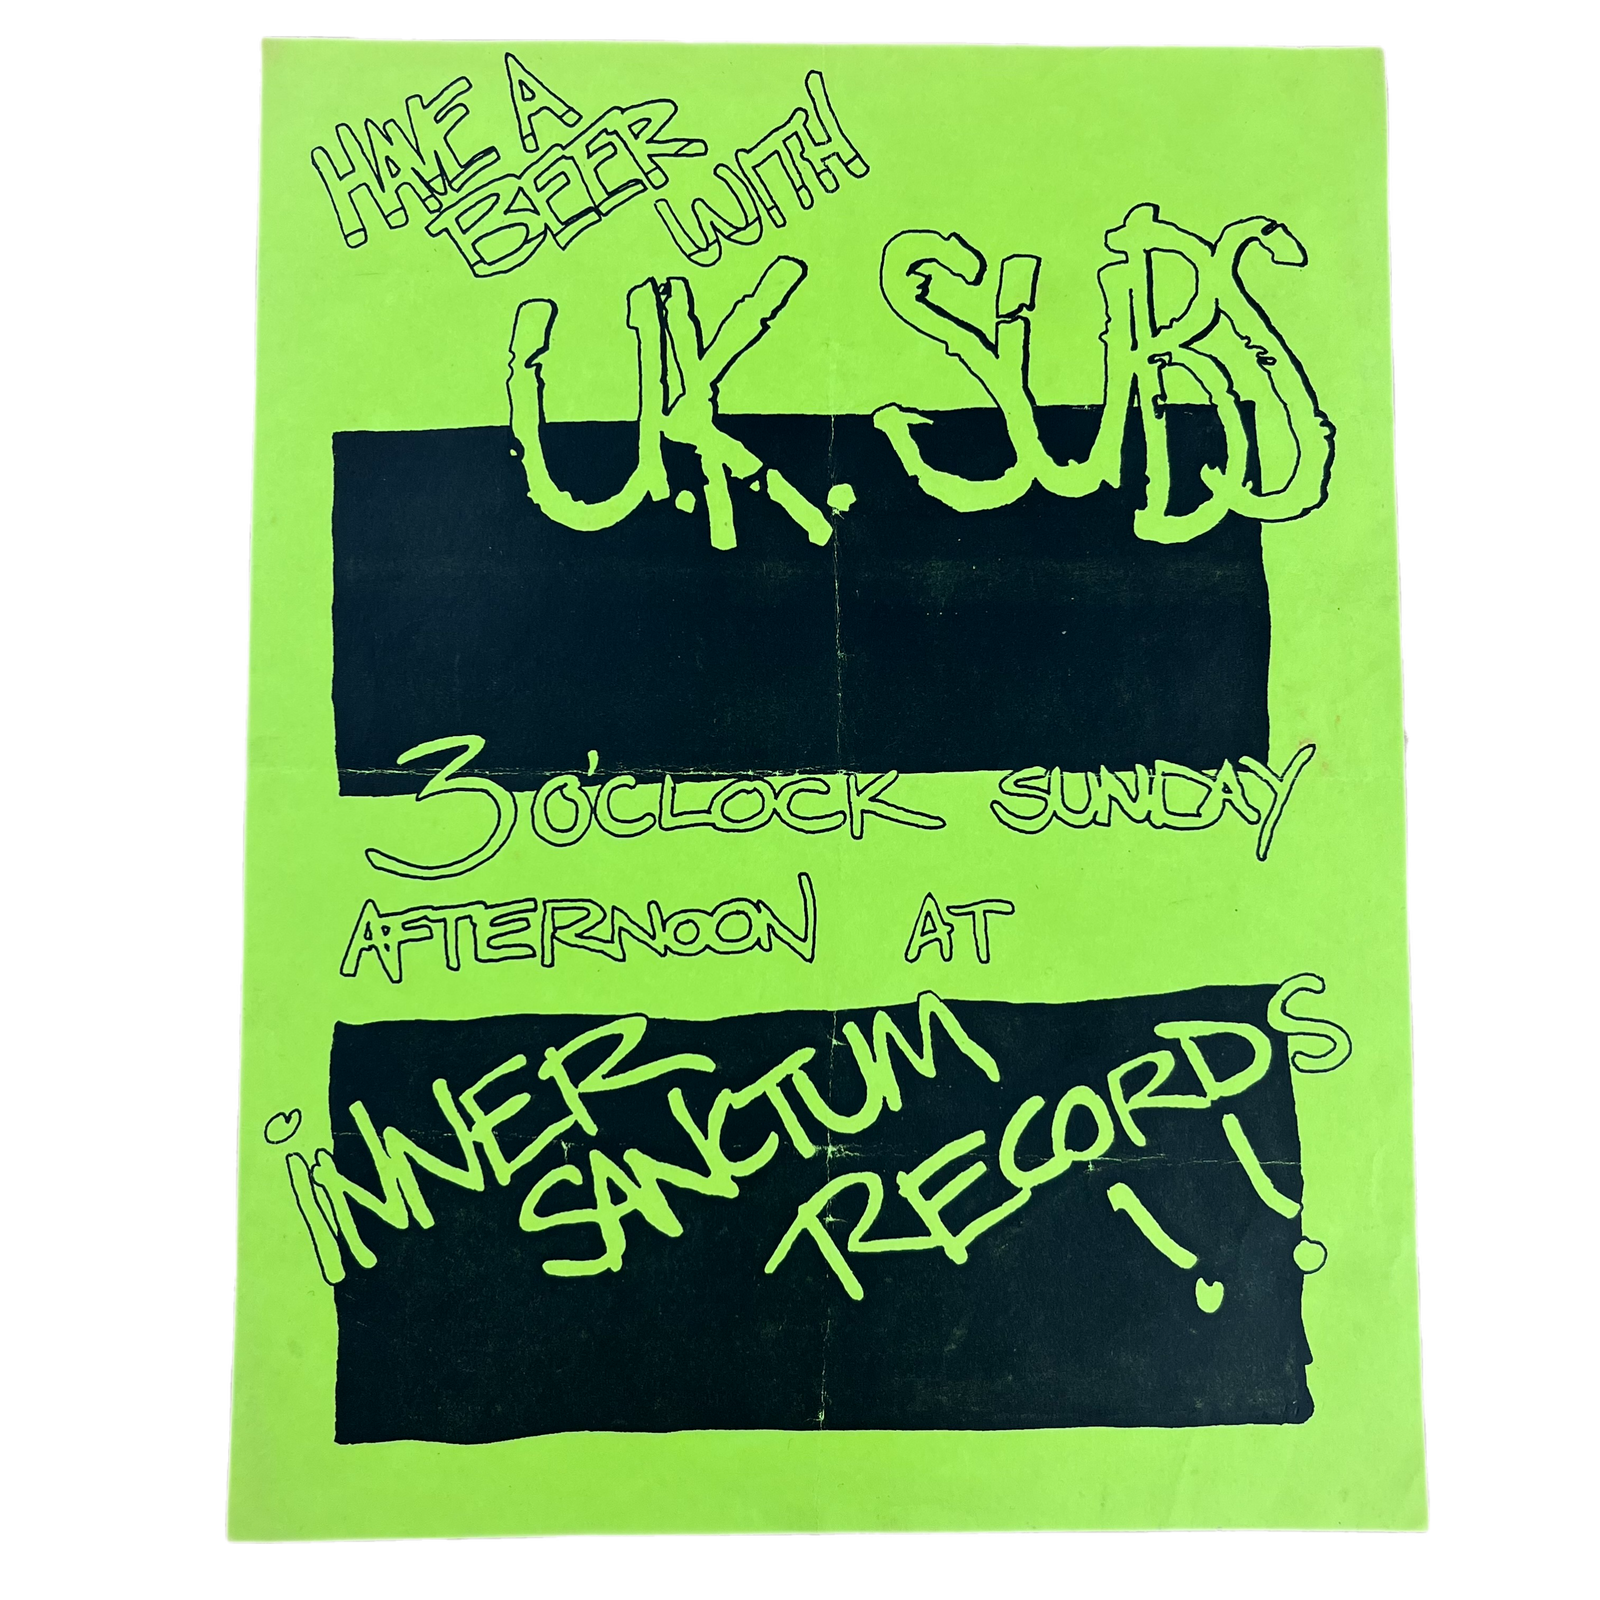 HAVE A
BEER WITH
U.K. SUBS
3 O'CLOCK SUNDAY
AFTERNOON AT
iNNER
SANCTUM
RECORDS!!